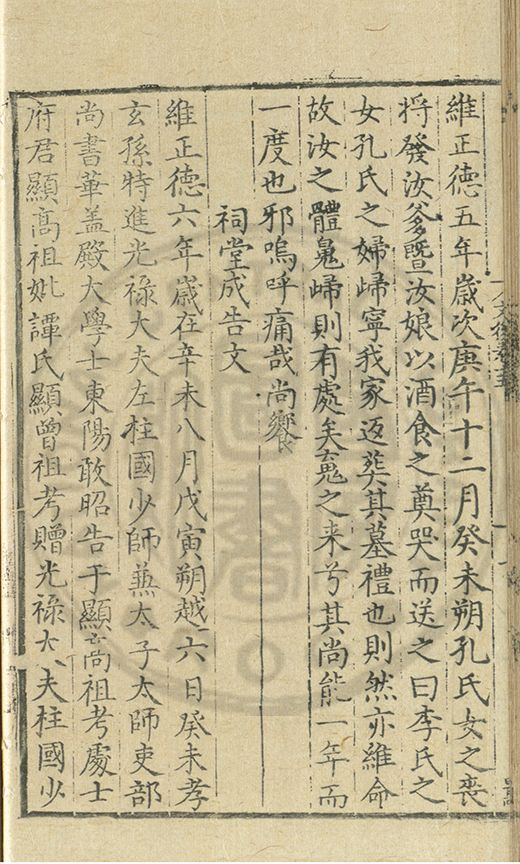 維正德五年歲次庚午十二月癸未朔孔氏女之喪
将發汝爹暨汝娘以酒食之奠哭而送之曰李氏之
女孔氏之婦歸寧我家返葬其墓禮也則然亦維命
故汝之體鬼歸則有處矣䰟之来兮其尚能一年而
一度也邪嗚呼痛哉尚饗
祠堂成告文
維正德六年歲在辛未八月戊寅朔越六日癸未孝
玄孫特進光祿大夫左柱國少師兼太子太師吏部
尚書華盖殿大學士東陽敢昭告于顯高祖考處士
府君顯高祖妣譚氏顯曾祖考贈光祿大夫柱國少